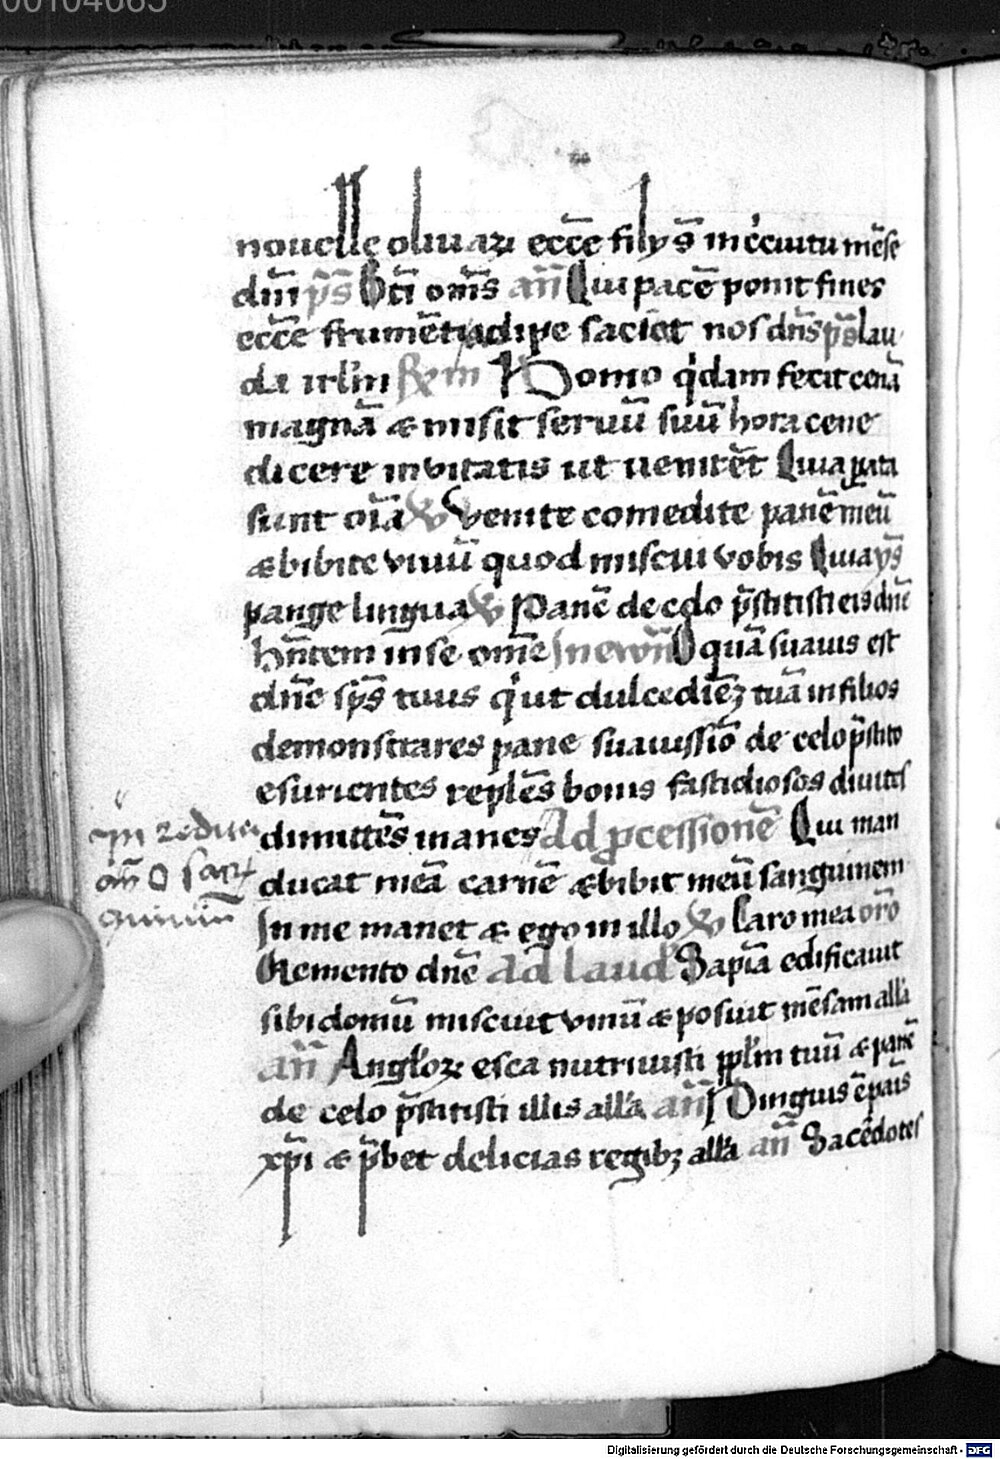 00104065
nouelle oliuaꝝ ecc̄e filij s̄ in c̓cuitu mēse
dn̄i ps̄ Bt̄i om̄s an̄ Qui pacē ponit fines
ecc̄e frumēti adipe saciet nos dn̄s ps̄ lau
da irl̄m R̄m Homo q̓dam fecit cenā
magnā & misit seruū suū hora cene
dicere inuitatis ut uenirēt Quia pata
sunt oīa V Venite comedite panē meū
& bibite vinū quod miscui vobis Quia ys̄
pange lingua V Panē de celo p̄stitisti eis dn̄e
hn̄tem in se om̄e In ew̄n O quā suauis est
dn̄e sp̄s tuus q̓ ut dulcediēꝫ tuā in filios
demonstrares pane suauissīo de celo p̄stito
esurientes reples̄ bonis fastidiosos diuites
dimittēs inanes Ad pcessionē Qui man
ducat meā carnē & bibit meū sanguinem
In me manet & ego in illo V Caro mea or̄o
Memento dn̄e Ad laud̓ Sapīa edificauit
sibi domū miscuit vinū & posuit mēsam all̄a
an̄ Angl̓oꝝ esca nutriuisti ppl̄m tuū & panē
de celo p̄stitisti illis all̄a an̄ Pinguis ē pais̄
xp̄i & p̄bet delicias regibꝫ all̄a an̄ Sacēdotes
In reditu
an̄ O sacꝝ
Digitalisierung gefördert durch die Deutsche Forschungsgemeinschaft - DFG